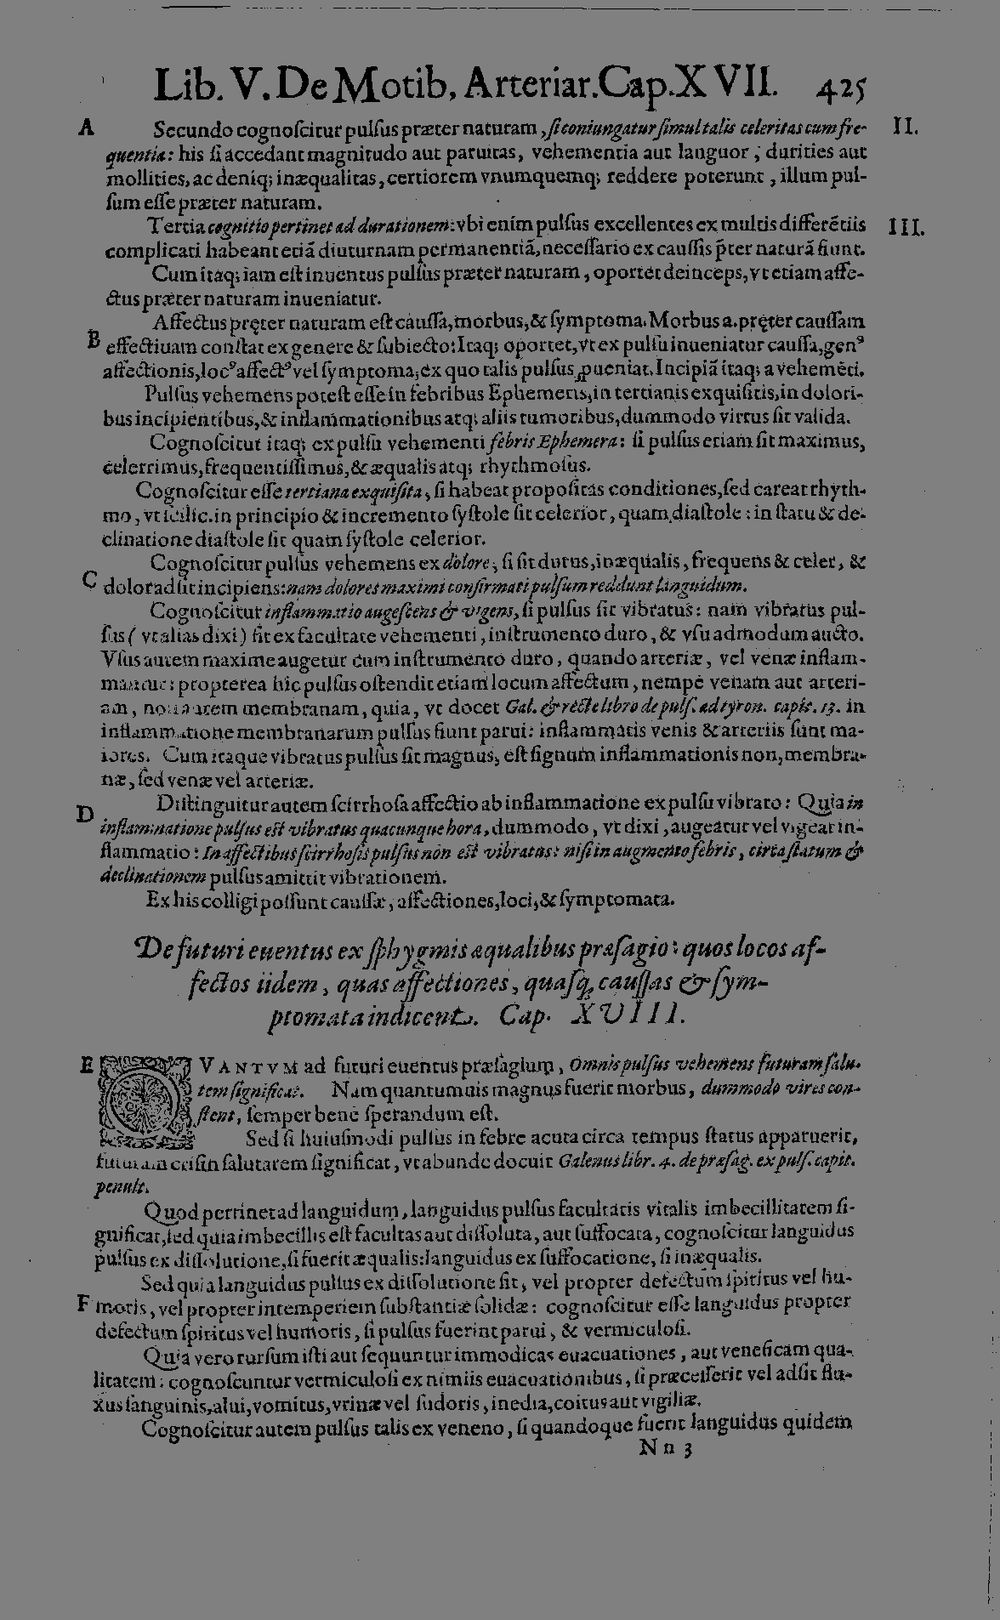 Lib. V. De Motib. Arteriar. Cap. XVII. 425
A Secundo cognoſcitur pulſus præter naturam, ſi coniungatur ſimul talis celeritas cum fre- II.
quentia: his ſi accedant magnitudo aut paruitas, vehementia aut languor, durities aut
mollities, ac deniq; inæqualitas, certiorem vnumquemq; reddere poterunt, illum pul-
ſum eſſe præter naturam.
Tertia cognitio pertinet ad durationem: vbi enim pulſus excellentes ex multis differẽtiis III.
complicati habeant etiã diuturnam permanentiã, neceſſario ex cauſſis p̃ter naturã fiunt.
Cum itaq; iam eſt inuentus pulſus præter naturam, oportet deinceps, vt etiam affe-
ctus præter naturam inueniatur.
Affectus pręter naturam eſt cauſſa, morbus, & ſymptoma. Morbus a. pręter cauſſam
B effectiuam conſtat ex genere & ſubiecto: Itaq; oportet, vt ex pulſu inueniatur cauſſa, genꝰ
affectionis, locꝰ affectꝰ vel ſymptoma, ex quo talis pulſus ꝓueniat. Incipiã itaq; a vehemẽti.
Pulſus vehemens poteſt eſſe in febribus Ephemeris, in tertianis exquiſitis, in dolori-
bus incipientibus, & inflammationibus atq; aliis tumoribus, dummodo virtus ſit valida.
Cognoſcitur itaq; ex pulſu vehementi febris Ephemera: ſi pulſus etiam ſit maximus,
celerrimus, frequentiſſimus, & æqualis atq; rhythmoſus.
Cognoſcitur eſſe tertiana exquiſita, ſi habeat propoſitas conditiones, ſed careat rhyth-
mo, vt ſcilic. in principio & incremento ſyſtole ſit celerior, quam diaſtole: in ſtatu & de-
clinatione diaſtole ſit quam ſyſtole celerior.
Cognoſcitur pulſus vehemens ex dolore, ſi ſit durus, inæqualis, frequens & celer, &
C dolor adſit incipiens: nam dolores maximi confirmati pulſum reddunt languidum.
Cognoſcitur inflammatio augeſcens & vigens, ſi pulſus ſit vibratus: nam vibratus pul-
ſus (vt alias dixi) fit ex facultate vehementi, inſtrumento duro, & vſu admodum aucto.
Vſus autem maxime augetur cum inſtrumento duro, quando arteriæ, vel venæ inflam-
mantur: propterea hic pulſus oſtendit etiam locum affectum, nempe venam aut arteri-
am, non autem membranam, quia, vt docet Gal. & recte libro de pulſ. ad tyron. capit. 13. in
inflammatione membranarum pulſus fiunt parui: inflammatis venis & arteriis ſunt ma-
iores. Cum itaque vibratus pulſus ſit magnus, eſt ſignum inflammationis non, membra-
næ, ſed venæ vel arteriæ.
Diſtinguitur autem ſcirrhoſa affectio ab inflammatione ex pulſu vibrato: Quia in
D inflammatione pulſus eſt vibratus quacunque hora, dummodo, vt dixi, augeatur vel vigeat in-
flammatio: In affectibus ſcirrhoſis pulſus non eſt vibratus: niſi in augmento febris, circa ſtatum &
declinationem pulſus amittit vibrationem.
Ex his colligi poſſunt cauſſæ, affectiones, loci, & ſymptomata.
De futuri euentus ex ſphygmis æqualibus præſagio: quos locos af-
fectos iidem, quas affectiones, quaſq; cauſſas & ſym-
ptomata indicent. Cap. XVIII.
E QVANTVM ad futuri euentus præſagium, Omnis pulſus vehemens futuram ſalu-
tem ſignificat. Nam quantumuis magnus fuerit morbus, dummodo vires con-
ſtent, ſemper bene ſperandum eſt.
Sed ſi huiuſmodi pulſus in febre acuta circa tempus ſtatus apparuerit,
futuram criſin ſalutarem ſignificat, vt abunde docuit Galenus libr. 4. de præſag. ex pulſ. capit.
penult.
Quod pertinet ad languidum, languidus pulſus facultatis vitalis imbecillitatem ſi-
gnificat, ſed quia imbecillis eſt facultas aut diſſoluta, aut ſuffocata, cognoſcitur languidus
pulſus ex diſſolutione, ſi fuerit æqualis: languidus ex ſuffocatione, ſi inæqualis.
Sed quia languidus pulſus ex diſſolutione fit, vel propter defectum ſpiritus vel hu-
F moris, vel propter intemperiem ſubſtantiæ ſolidæ: cognoſcitur eſſe languidus propter
defectum ſpiritus vel humoris, ſi pulſus fuerint parui, & vermiculoſi.
Quia vero rurſum iſti aut ſequuntur immodicas euacuationes, aut veneficam qua-
litatem: cognoſcuntur vermiculoſi ex nimiis euacuationibus, ſi præceſſerit vel adſit flu-
xus ſanguinis, alui, vomitus, vrinæ vel ſudoris, inedia, coitus aut vigiliæ.
Cognoſcitur autem pulſus talis ex veneno, ſi quandoque fuerit languidus quidem
Nn 3